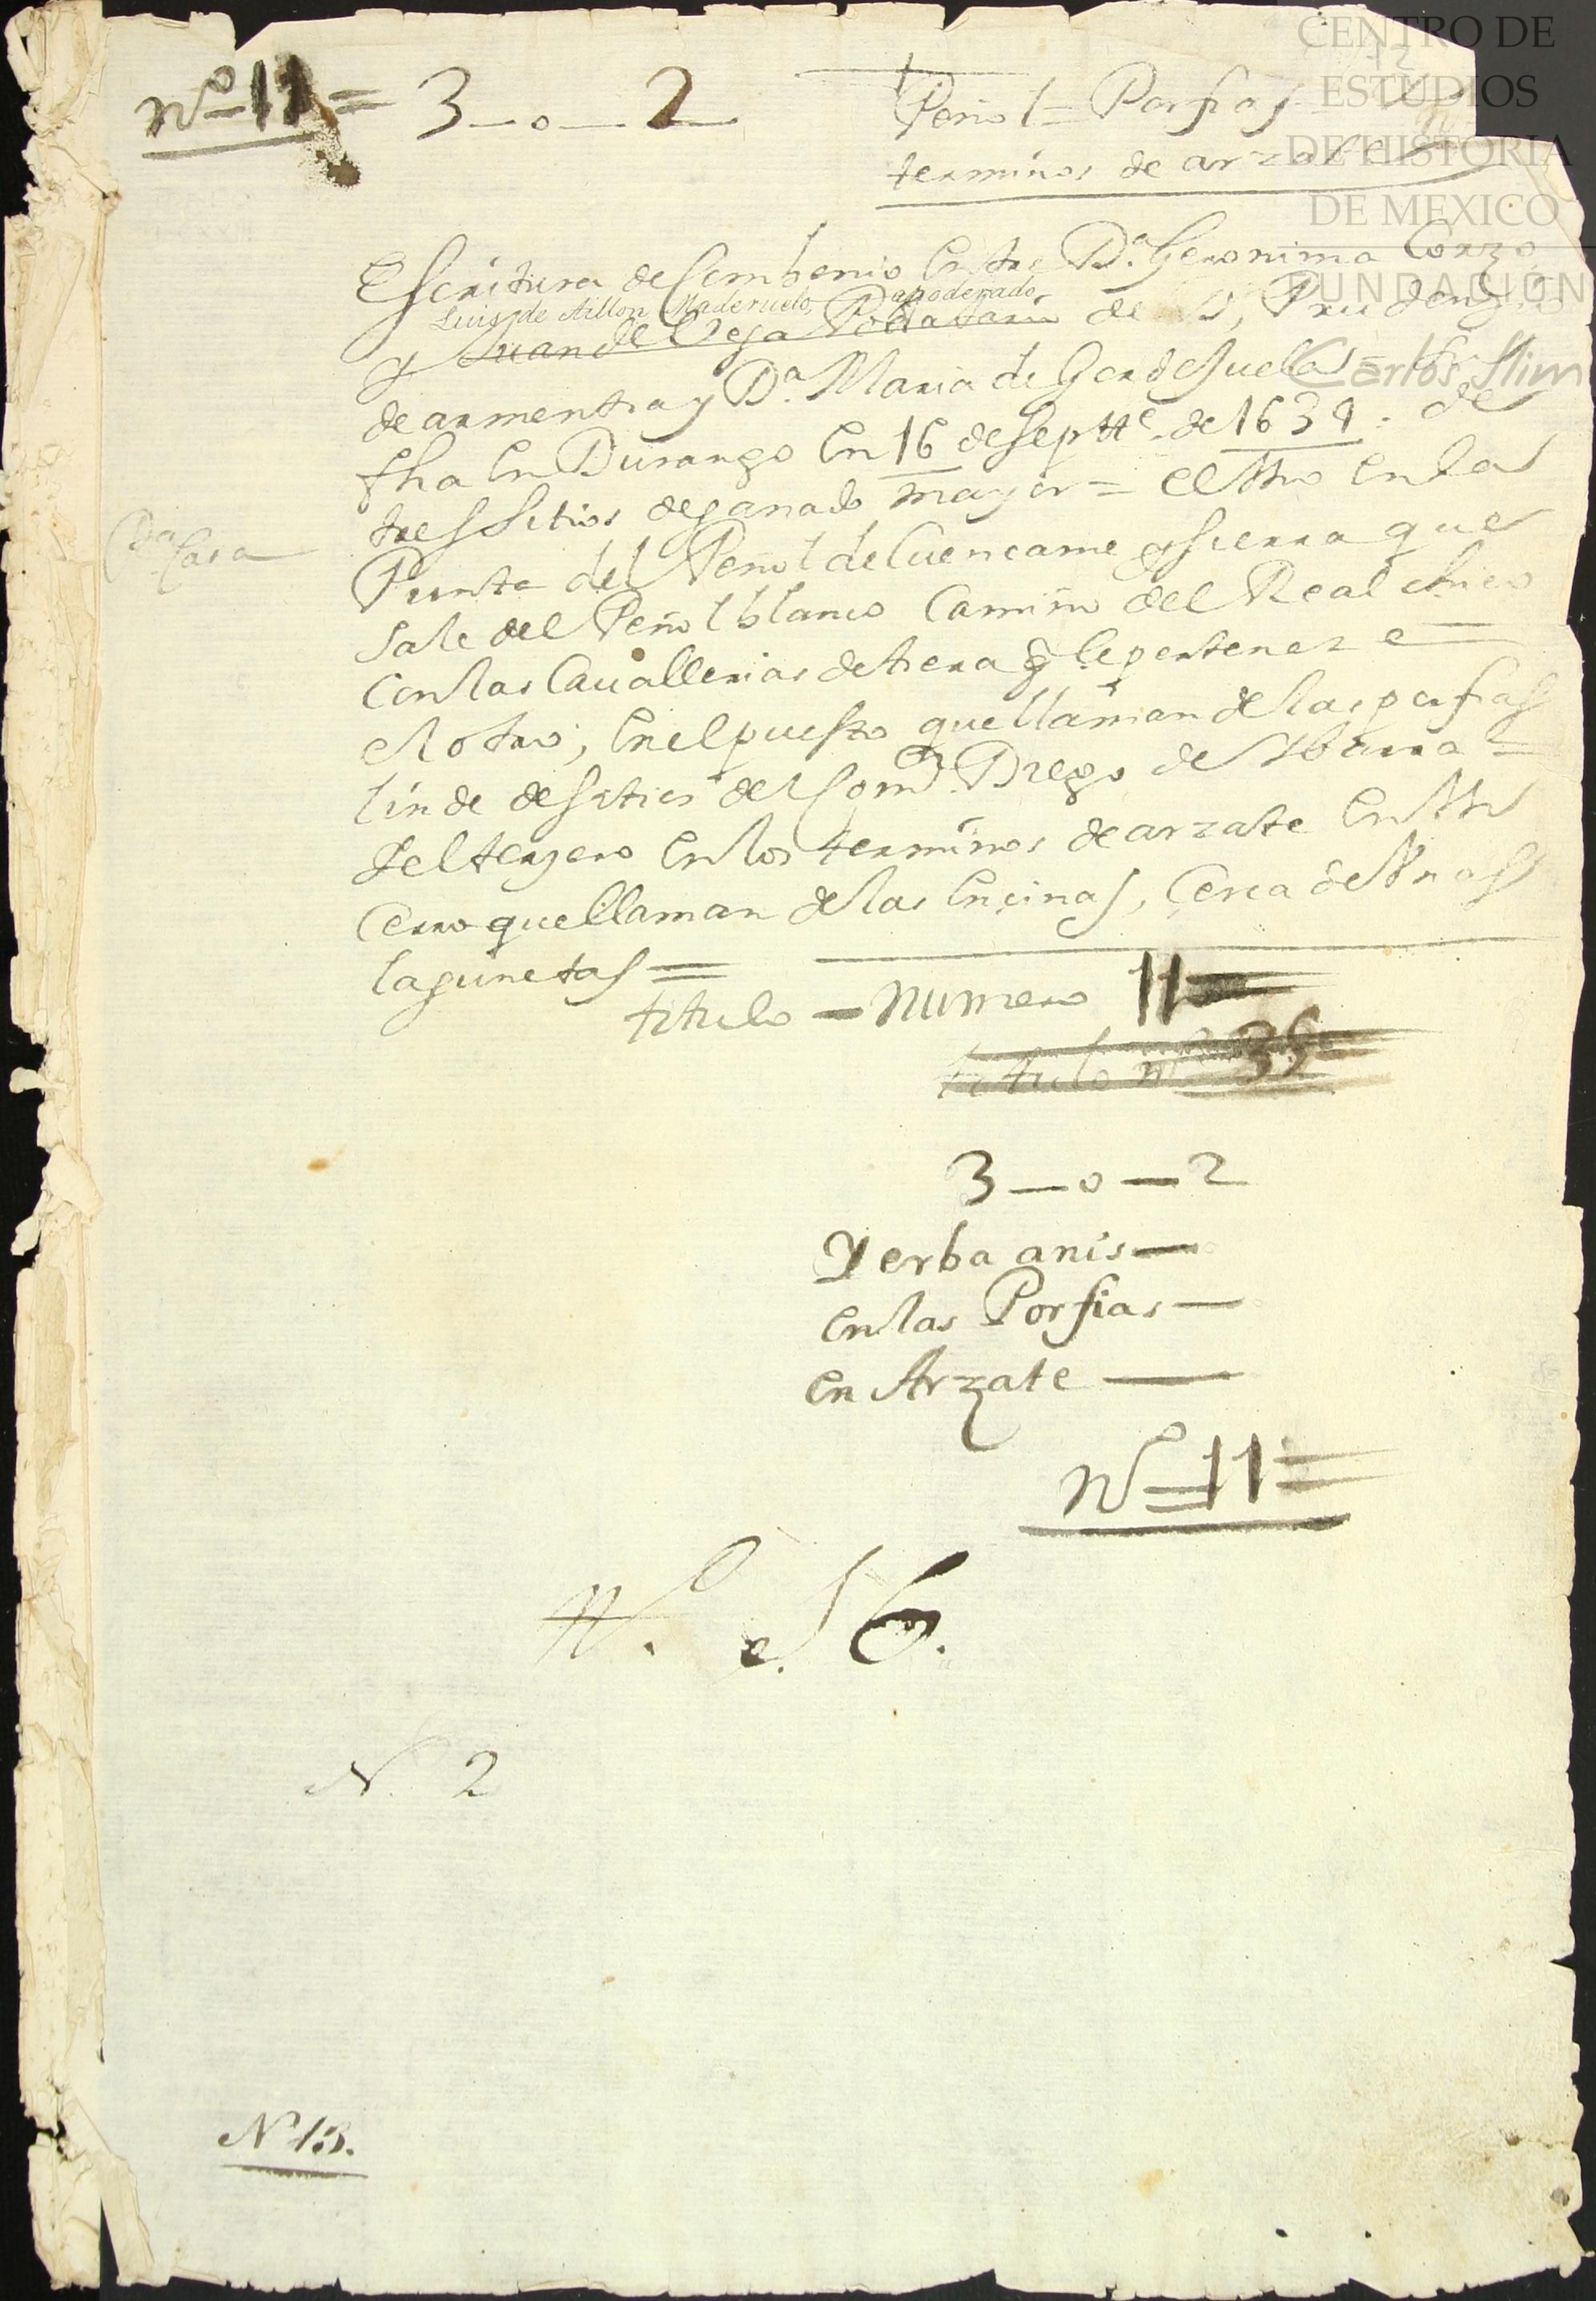 nº 11 = 3 _ o _ 2
Peñol = Porfias
terminos de arzate
CENTRO DE
ESTUDIOS
DE HISTORIA
DE MEXICO
FUNDACIÓN
Carlos Slim
Escritura de Combenio Entre Dª. Geronima Corzo,
Luis de Aillon Maderuelo, apoderado
y Juan de Vega Podatario de D, Prudenzio
de armentia y Dª. Maria de Gordesuela =
fha En Durango En 16 de septtᵉ. de 1639 : de
tres sitios de ganado mayor = El Vno En la
Punta del Peñol de Cuencame y sierra que
sale del Peñol blanco Camino del Real
Con las Cauallerias de tierra q̃ le perteneze
el otro, En el puesto que llaman de las porfias
linde de sitios del Diego de Ybarra =
Y el terzero En los terminos de arzate En Vn
Cerro que llaman de las Encinas, Cerca de Vnas
lagunetas =
Casa
titulo = numero 11 =
titulo nº 35
3 _ o _ 2
Yerba anis
En las Porfias
En Arzate
Nº = 11 =
Nº. 16.
N. 2
Nº 13.